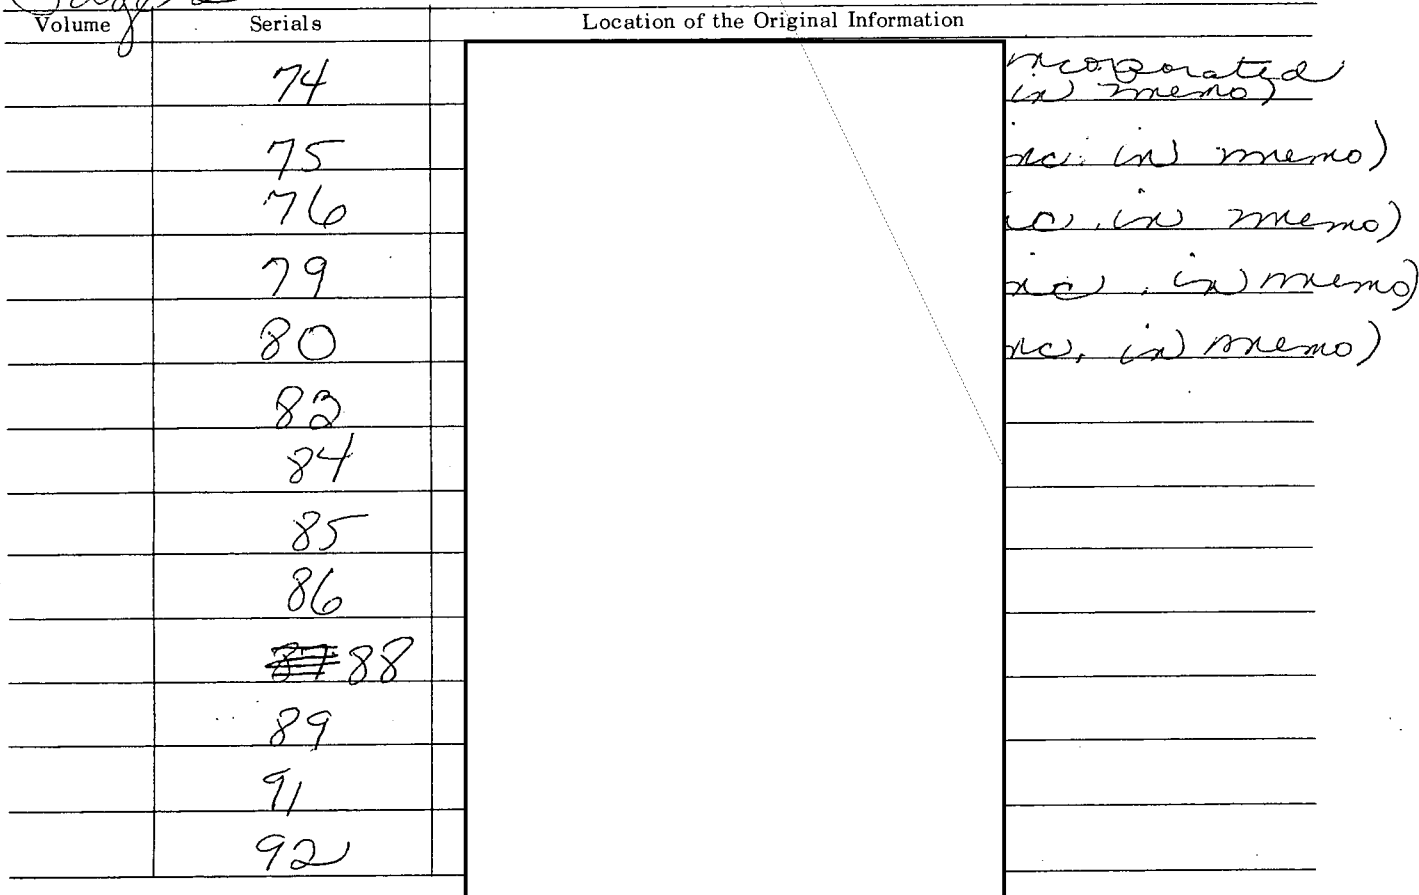 Volume Serials Location of the Original Information
74 ncorporated
in memo)
75 nc. in memo)
76 c. in memo)
79 nc. in memo)
80 nc. in memo)
83
84
85
86
87 88
89
91
92